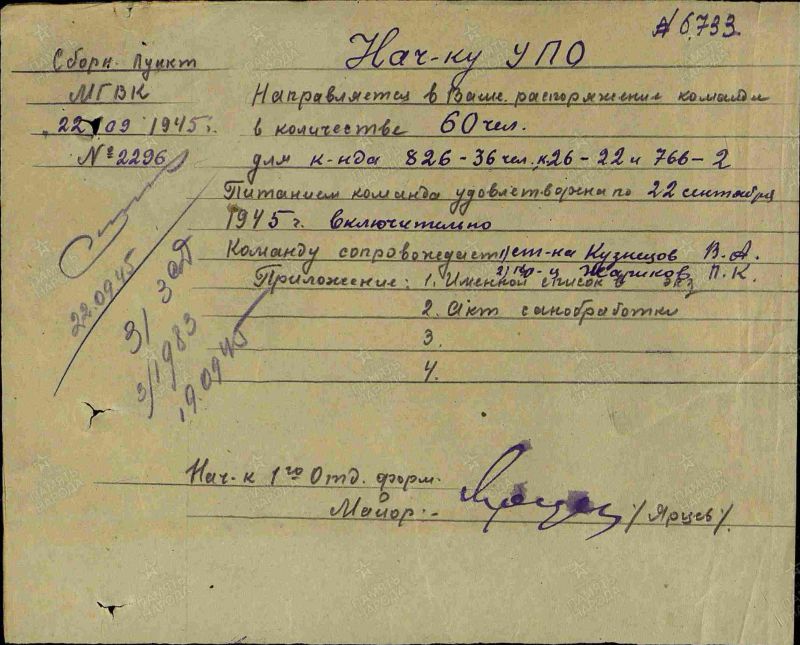 № 6733
Сборн. Пункт
МГВК
22/09 1945 г.
№ 2296
Нач-ку УПО
Направляется в Ваше распоряжение команда
в количестве 60 чел.
для к-нда 826-36 чел. 26-22 и 766-2
Питанием команда удовлетворена по 22 сентября
1945 г. включительно
Команду сопровождает 1) ст-на Кузнецов В.А.
2) Жариков П.К.
Приложение: 1. Именной список в экз
2. Акт санобработки
3.
4.
22.09.45
3/ ЗОД
3/1983
19.09.45
Нач-к 1го Отд. форм.
Майор:- /Ярцев/.
ПАМЯТЬ НАРОДА